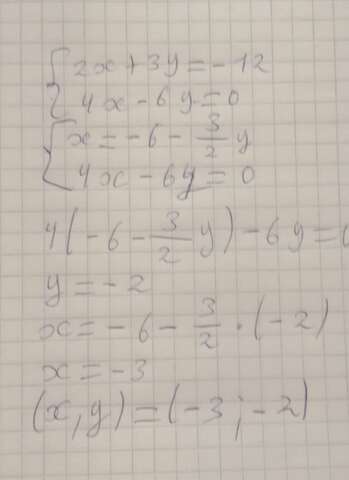 { 2x + 3y = -12
4x - 6y = 0
{ x = -6 - 3/2 y
4x - 6y = 0
4(-6 - 3/2 y) - 6y = 0
y = -2
x = -6 - 3/2 · (-2)
x = -3
(x, y) = (-3; -2)